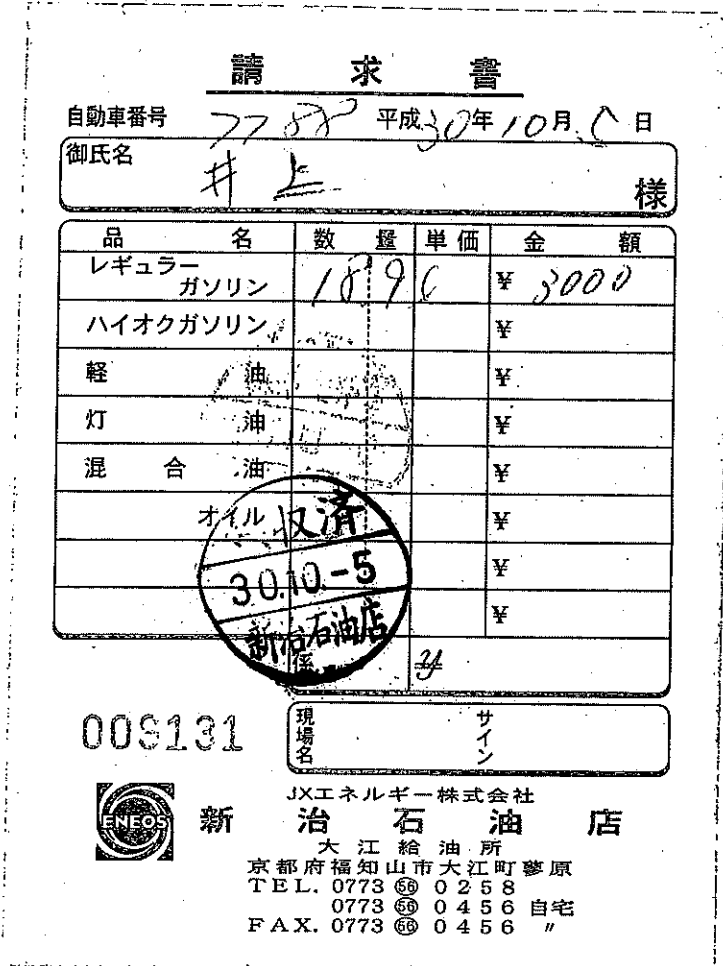 請求書
自動車番号 7788 平成30年10月5日
御氏名
井上 様
品名 数量 単価 金額
レギュラーガソリン 189 ¥ 3000
ハイオクガソリン ¥
軽油 ¥
灯油 ¥
混合油 ¥
オイル ¥
¥
¥
収済
30.10.-5
新治石油店
係
現場名 サイン
JXエネルギー株式会社
ENEOS 新治石油店
大江給油所
京都府福知山市大江町蓼原
TEL. 0773 56 0258
0773 56 0456 自宅
FAX. 0773 56 0456 〃